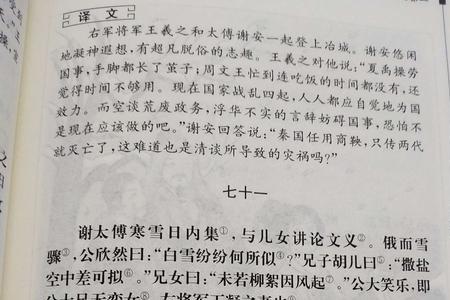 译文
右军将军王羲之和太傅谢安一起登上冶城。谢安悠闲
地凝神遐想，有超凡脱俗的志趣。王羲之对他说；“夏禹操劳
国事，手脚都长了茧子；周文王忙到连吃饭的时间都没有，还
觉得时间不够用。现在国家战乱四起，人人都应自觉地为国
效力。而空谈荒废政务，浮华不实的言辞妨碍国事，恐怕不
是现在应该做的吧。”谢安回答说；“秦国任用商鞅，只传两代
就灭亡了，这难道也是清谈所导致的灾祸吗？”
七十一
谢太傅寒雪日内集①，与儿女讲论文义②。俄而雪
骤③，公欣然曰：“白雪纷纷何所似④？”兄子胡儿曰⑤：“撒盐
空中差可拟⑥。”兄女曰：“未若柳絮因风起⑦。”公大笑乐，即